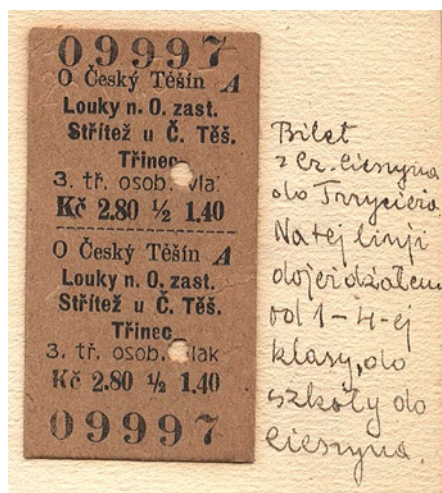 09997
O Český Těšín A
Louky n. O. zast.
Střítež u Č. Těš.
Třinec
3. tř. osob. vla
Kč 2.80 ½ 1.40
O Český Těšín A
Louky n. O. zast.
Střítež u Č. Těš.
Třinec
3. tř. osob. lak
Kč 2.80 ½ 1.40
09997
Bilet
z Cz. Cieszyna
do Trzyńca
Na tej linji
dojeżdżałem
od 1-4-ej
klasy, do
szkoły do
Cieszyna.